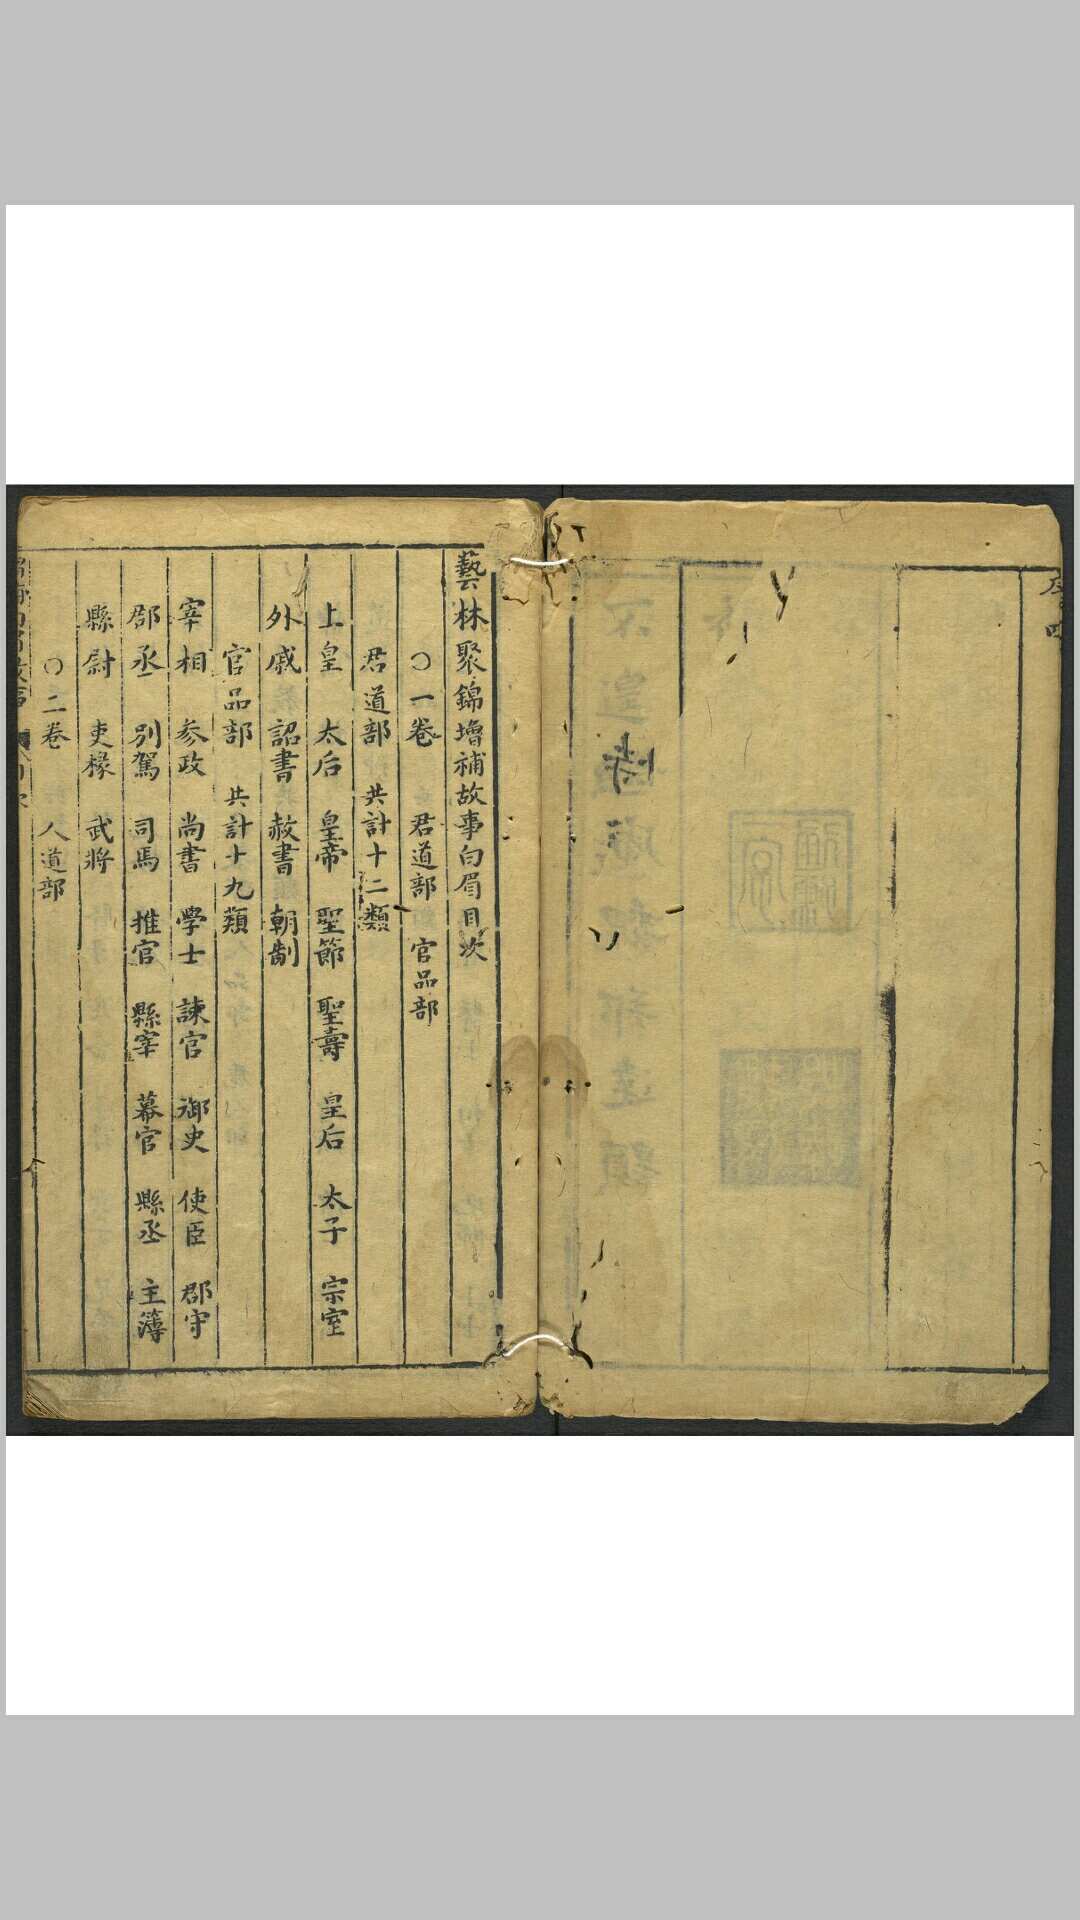 藝林聚錦増補故事白眉目次
〇一卷 君道部 官品部
君道部 共計十二類
上皇 太后 皇帝 聖節 聖壽 皇后 太子 宗室
外戚 詔書 赦書 朝制
官品部 共計十九類
宰相 參政 尚書 學士 諫官 御史 使臣 郡守
郡丞 別駕 司馬 推官 縣宰 幕官 縣丞 主簿
縣尉 吏椽 武將
〇二卷 人道部